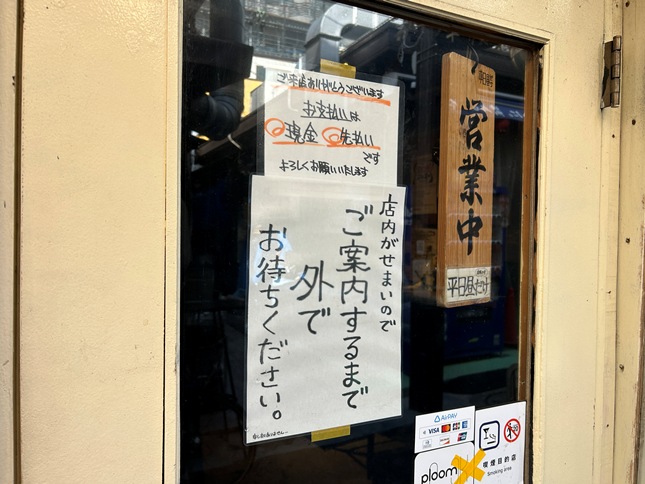 ご来店ありがとうございます
お支払いは
現金 先払い
です
よろしくお願いいたします
店内がせまいので
ご案内するまで
外で
お待ちください。
営業中
平日昼だけ
AirPAY
VISA
ploom
喫煙目的店
Smoking area